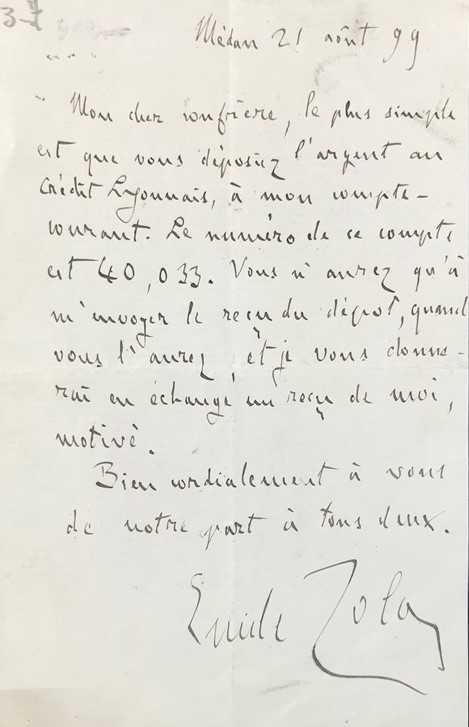 37
Médan 21 août 99
Mon cher confrère, le plus simple
est que vous déposiez l'argent au
Crédit Lyonnais, à mon compte-
courant. Le numéro de ce compte
est 40,033. Vous n'aurez qu'à
m'envoyer le reçu du dépot, quand
vous l'aurez, et je vous donne-
rai en échange un reçu de moi,
motivé.
Bien cordialement à vous
de notre part à tous deux.
Emile Zola